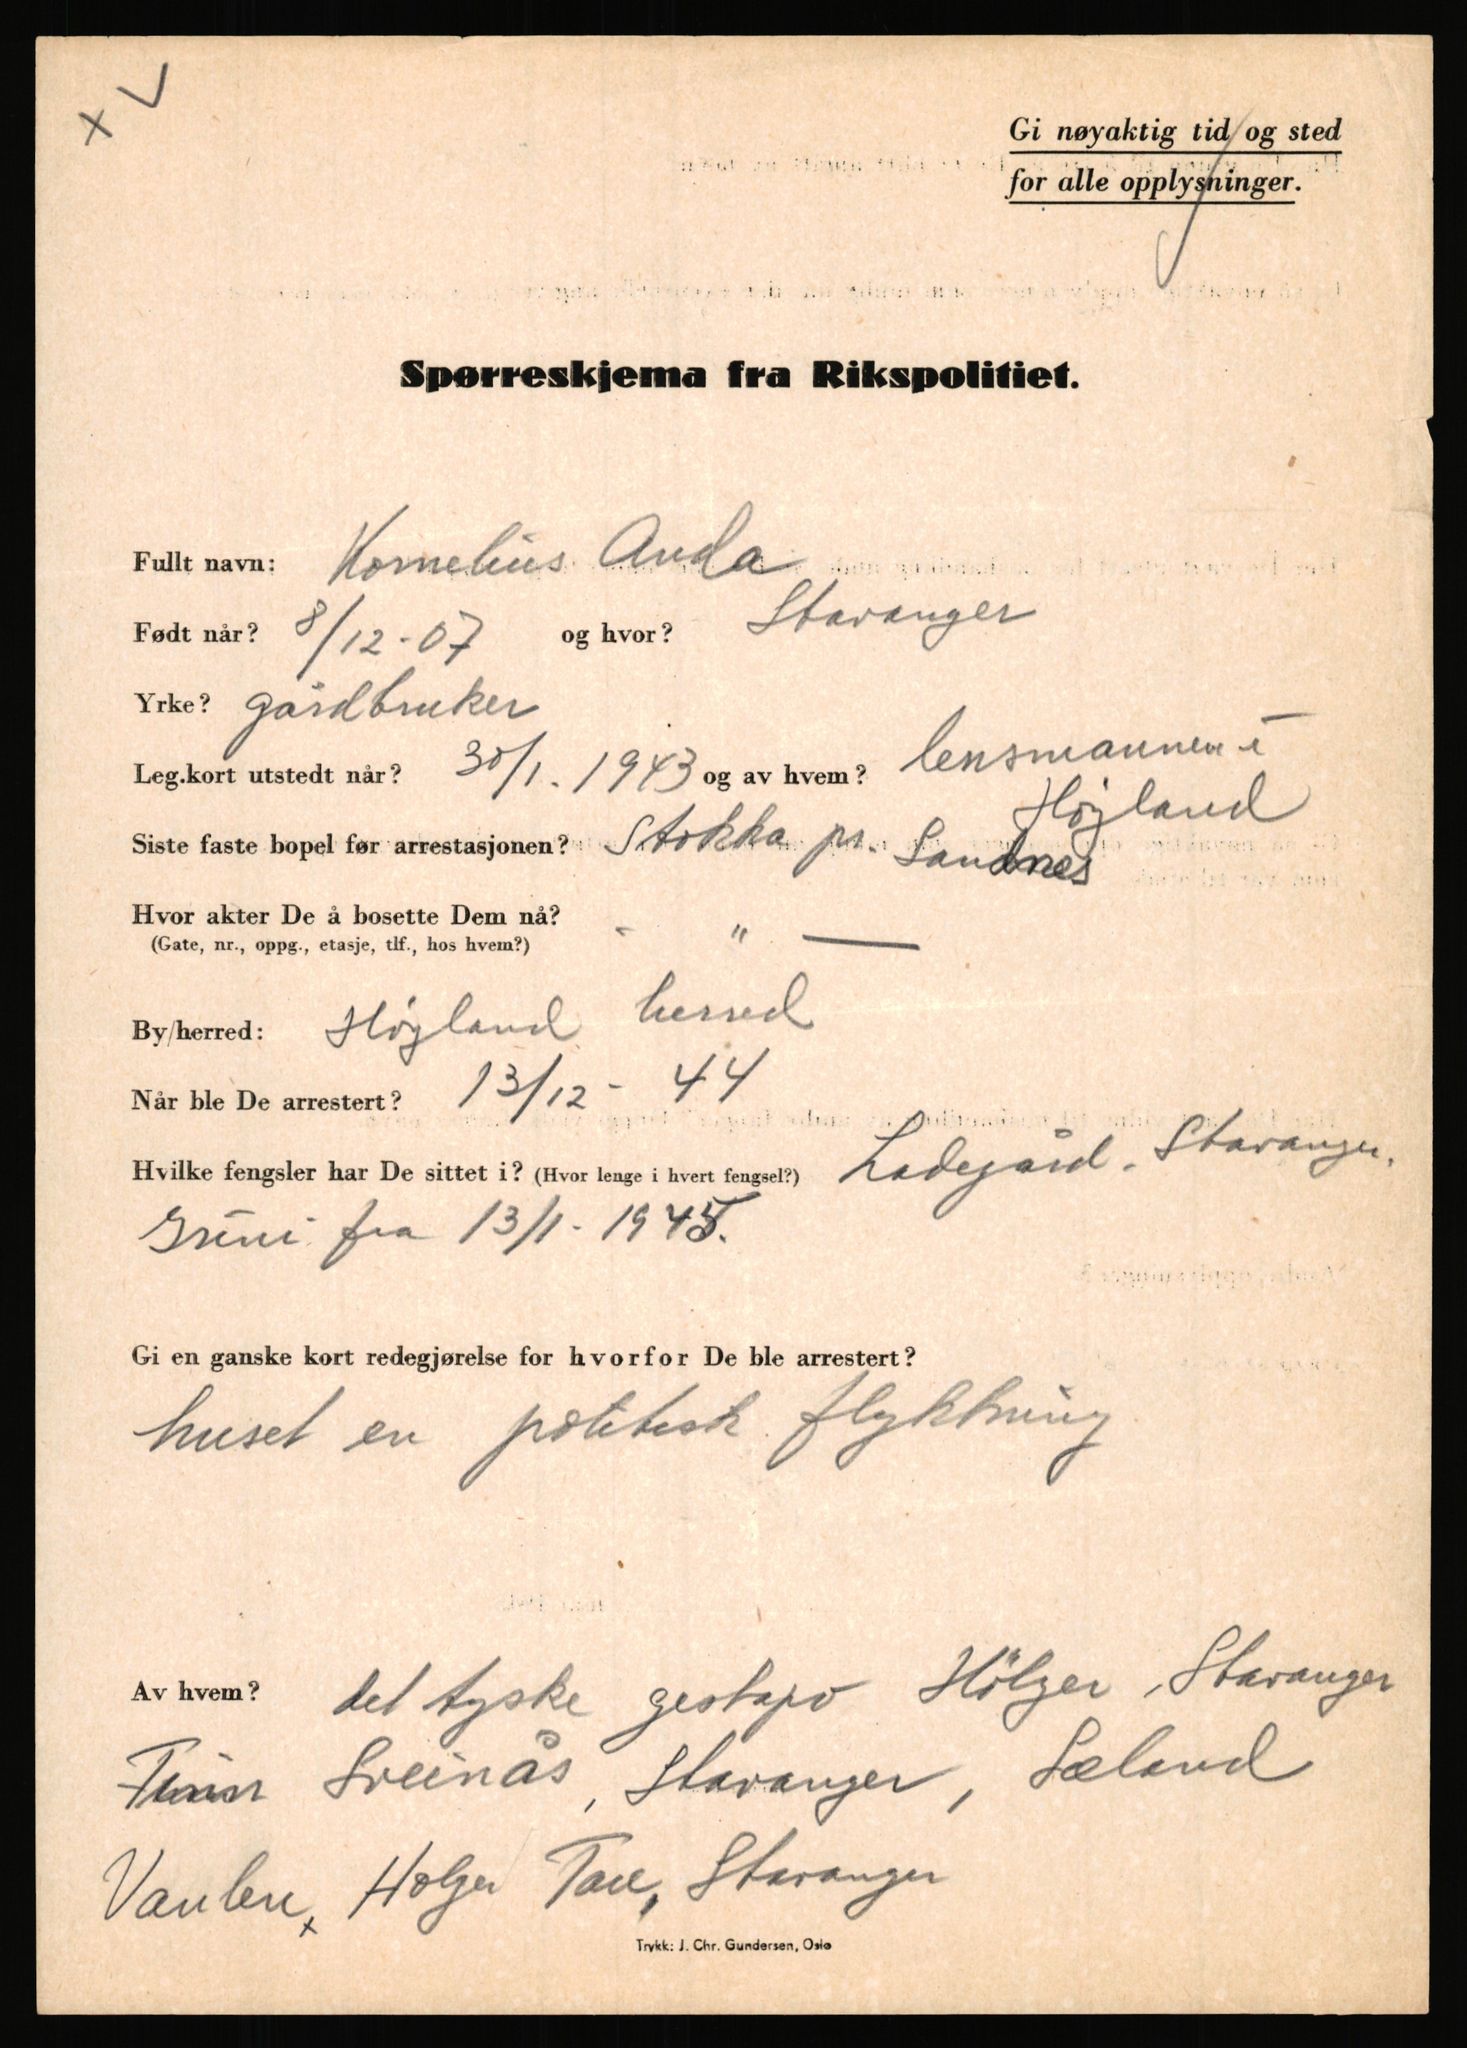 Gi nøyaktig tid og sted
for alle opplysninger.
Spørreskjema fra Rikspolitiet.
Fullt navn: Kornelius Anda
Født når? 8/12-07 og hvor? Stavanger
Yrke? gårdbruker
Leg.kort utstedt når? 30/1. 1943 og av hvem? lensmannen i
Høyland
Siste faste bopel før arrestasjonen? Stokka pr. Sandnes
Hvor akter De å bosette Dem nå? - " —
(Gate, nr., oppg., etasje, tlf., hos hvem?)
By/herred: Høyland herred
Når ble De arrestert? 13/12 - 44
Hvilke fengsler har De sittet i? (Hvor lenge i hvert fengsel?) Ladegård. Stavanger.
Grini fra 13/1. 1945.
Gi en ganske kort redegjørelse for hvorfor De ble arrestert?
huset en politisk flyktning
Av hvem? det tyske gestapo Hölger, Stavanger
Sveinås, Stavanger, Sæland
Vaulen, Holger Tou, Stavanger
Trykk: J. Chr. Gundersen, Oslo